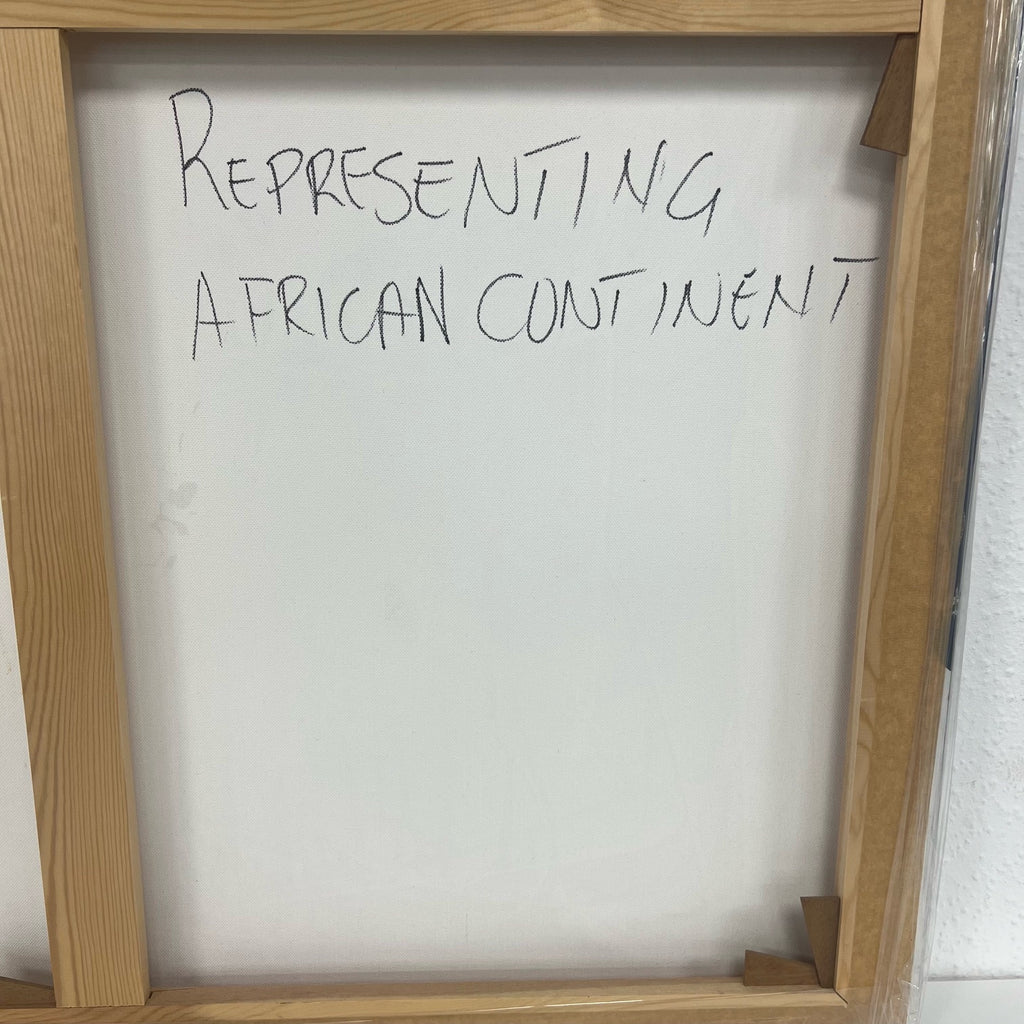 REPRESENTING
AFRICAN CONTINENT